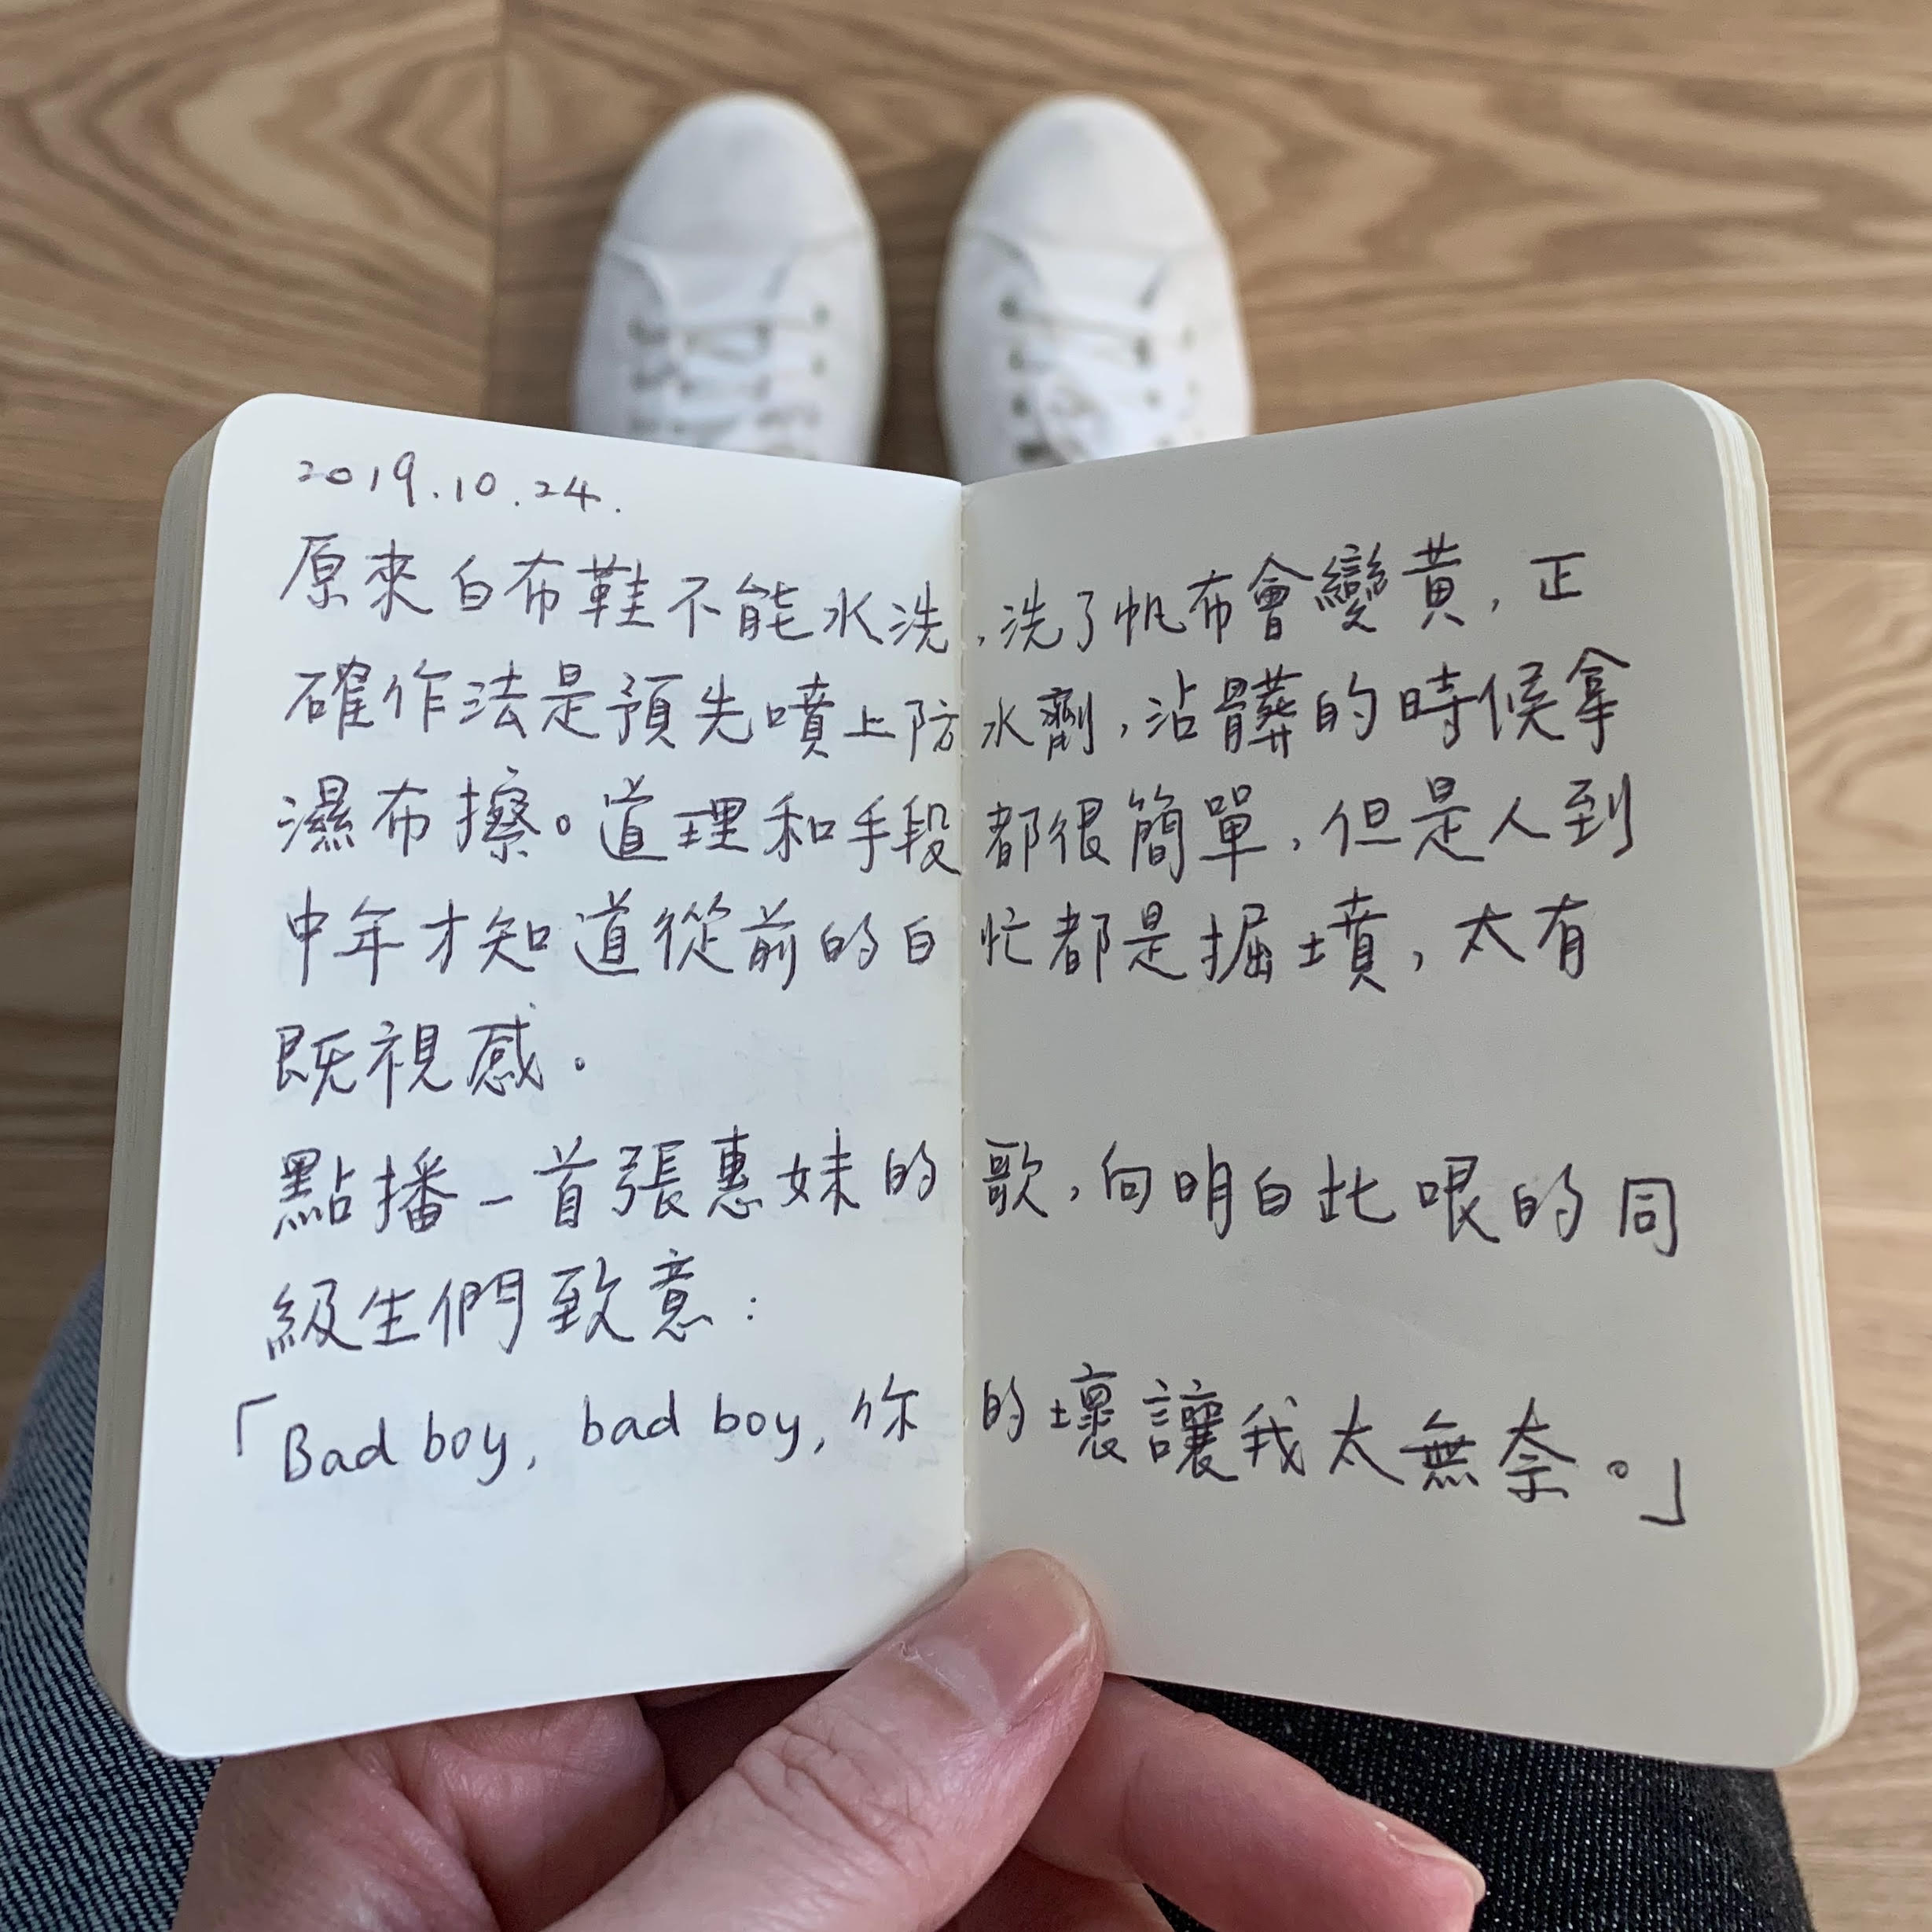 2019.10.24.
原來白布鞋不能水洗,洗了帆布會變黃,正
確作法是預先噴上防水劑,沾髒的時候拿
濕布擦。道理和手段都很簡單,但是人到
中年才知道從前的白忙都是掘墳,太有
既視感。
點播一首張惠妹的歌,向明白此哏的同
級生們致意:
「Bad boy, bad boy, 你的壞讓我太無奈。」